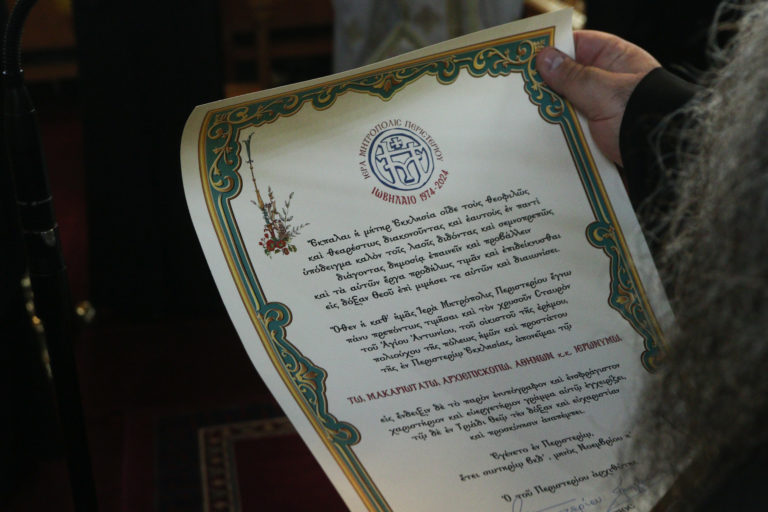 ΙΕΡΑ ΜΗΤΡΟΠΟΛΙΣ ΠΕΡΙΣΤΕΡΙΟΥ
ΙΩΒΗΛΑΙΟ 1974-2024
Ἔκπαλαι ἡ μήτηρ Ἐκκλησία οἶδε τοὺς θεοφιλῶς
καὶ θεαρέστως διακονοῦντας καὶ ἑαυτοὺς ἐν παντὶ
ὑπόδειγμα καλὸν τοῖς λαοῖς διδόντας καὶ σεμνοπρεπῶς
διάγοντας, δημοσίᾳ ἐπαινεῖν καὶ προβάλλειν
καὶ τὰ αὐτῶν ἔργα προδήλως τιμᾶν καὶ ἐπιδείκνυσθαι
εἰς δόξαν Θεοῦ ἐπὶ μιμήσει τε αὐτῶν καὶ διαιωνίσει.
Ὅθεν ἡ καθ᾽ ἡμᾶς Ἱερὰ Μητρόπολις Περιστερίου ἔγνω
πάνυ πρεπόντως τιμῆσαι καὶ τὸν χρυσοῦν Σταυρὸν
τοῦ Ἁγίου Ἀντωνίου, τοῦ οἰκιστοῦ τῆς ἐρήμου,
πολιούχου τῆς πόλεως ἡμῶν καὶ προστάτου
τῆς ἐν Περιστερίῳ Ἐκκλησίας, ἀπονεῖμαι τῷ
ΤΩ ΜΑΚΑΡΙΩΤΑΤΩ ΑΡΧΙΕΠΙΣΚΟΠΩ ΑΘΗΝΩΝ κ.κ. ΙΕΡΩΝΥΜΩ
εἰς ἔνδειξιν δὲ τὸ παρὸν ἐνυπόγραφον καὶ ἐνσφράγιστον
χαριστήριον καὶ εὐεργετήριον γράμμα αὐτῷ ἐγχειρίζει,
τῷ δὲ ἐν Τριάδι Θεῷ τὴν δόξαν καὶ εὐχαριστίαν
καὶ προσκύνησιν ἀναπέμπει.
Ἐγένετο ἐν Περιστερίῳ,
ἔτει σωτηρίῳ βκδ´, μηνὸς Νοεμβρίου
Ὁ τοῦ Περιστερίου